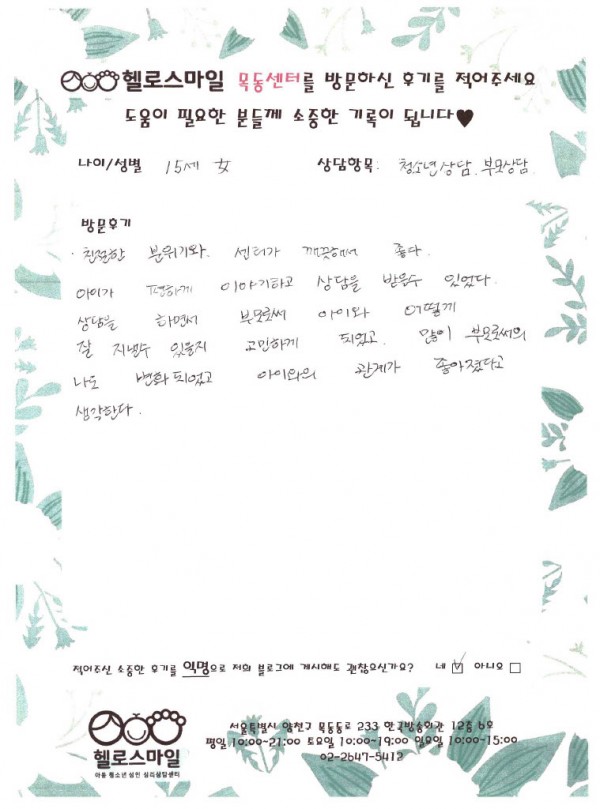 헬로스마일 목동센터를 방문하신 후기를 적어주세요
도움이 필요한 분들께 소중한 기록이 됩니다♥
나이/성별 15세 女 상담항목: 청소년상담, 부모상담
방문후기
· 친절한 분위기와. 센터가 깨끗해서 좋다.
아이가 편하게 이야기하고 상담을 받을수 있었다.
상담을 하면서 부모로써 아이와 어떻게
잘 지낼수 있을지 고민하게 되었고. 많이 부모로써의
나도 변화되었고 아이와의 관계가 좋아졌다고
생각한다.
적어주신 소중한 후기를 익명으로 저희 블로그에 게시해도 괜찮으신가요? 네 ☑ 아니오 □
헬로스마일
아동 청소년 성인 심리상담센터
서울특별시 양천구 목동동로 233 한국방송회관 12층 6호
평일 10:00-21:00 토요일 10:00-19:00 일요일 10:00-15:00
02-2647-5412